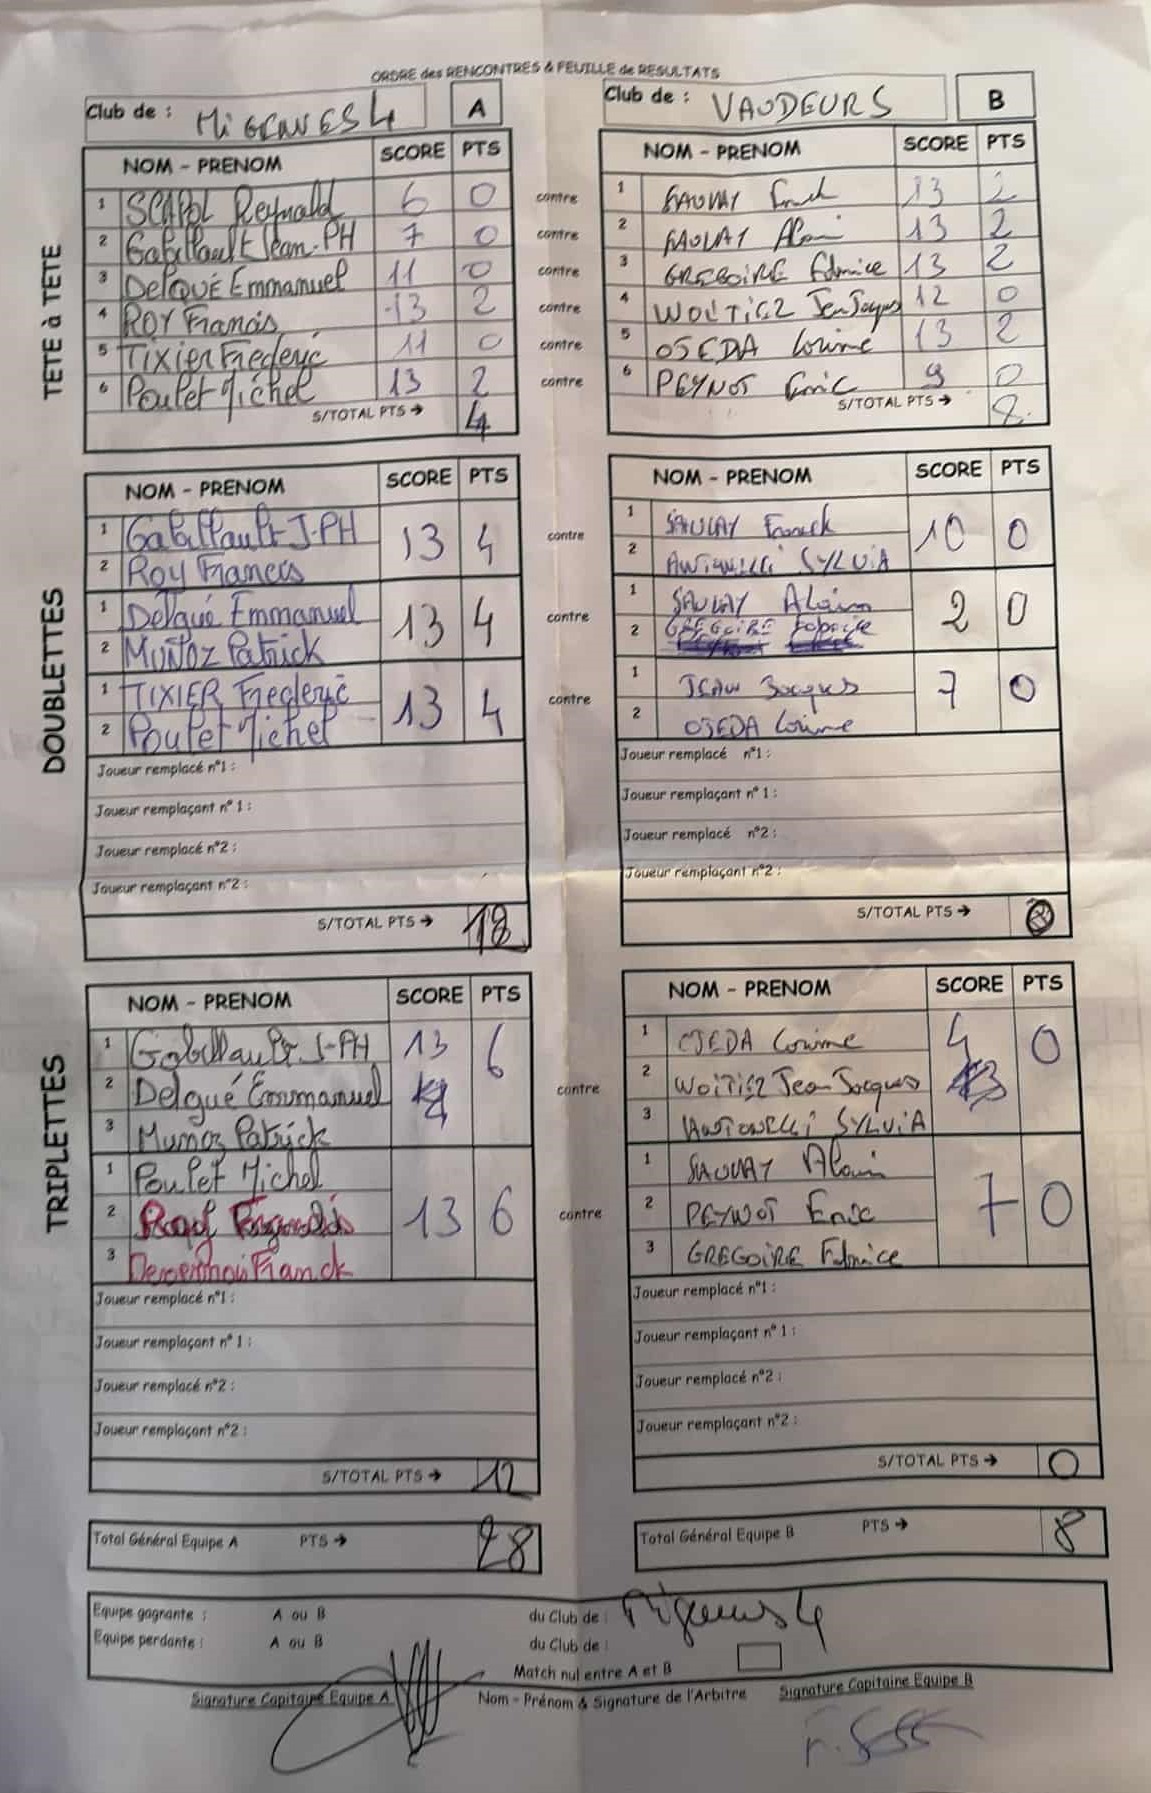 ORDRE des RENCONTRES & FEUILLE de RESULTATS
Club de : MiGENNES 4 A
Club de : VAUDEURS B
TETE à TETE
NOM - PRENOM SCORE PTS
1 SCAPOL Reynald 6 0
2 Gabillault Jean-PH 7 0
3 Delqué Emmanuel 11 0
4 ROY Francis 13 2
5 Tixier Frederic 11 0
6 Poulet Michel 13 2
S/TOTAL PTS → 4
contre
contre
contre
contre
contre
contre
NOM - PRENOM SCORE PTS
1 SAULAY Franck 13 2
2 SAULAY Alain 13 2
3 GREGOIRE Fabrice 13 2
4 WOITIEZ Jean Jacques 12 0
5 OJEDA Corinne 13 2
6 PEYNOT Eric 9 0
S/TOTAL PTS → 8
DOUBLETTES
NOM - PRENOM SCORE PTS
1 Gabillault J-PH 13 4
2 Roy Francis
1 Delqué Emmanuel 13 4
2 MUÑOZ Patrick
1 TIXIER Frederic 13 4
2 Poulet Michel
Joueur remplacé n°1 :
Joueur remplaçant n° 1 :
Joueur remplacé n°2 :
Joueur remplaçant n°2 :
S/TOTAL PTS → 12
contre
contre
contre
NOM - PRENOM SCORE PTS
1 SAULAY Franck 10 0
2 ANTONELLI SYLVIA
1 SAULAY Alain 2 0
2 GREGOIRE Fabrice
1 JEAN Jacques 7 0
2 OJEDA Corinne
Joueur remplacé n°1 :
Joueur remplaçant n° 1 :
Joueur remplacé n°2 :
Joueur remplaçant n°2 :
S/TOTAL PTS → 0
TRIPLETTES
NOM - PRENOM SCORE PTS
1 Gabillault J-PH 13 6
2 Delqué Emmanuel
3 Munoz Patrick
1 Poulet Michel
2 13 6
3 Franck
Joueur remplacé n°1 :
Joueur remplaçant n° 1 :
Joueur remplacé n°2 :
Joueur remplaçant n°2 :
S/TOTAL PTS → 12
contre
contre
NOM - PRENOM SCORE PTS
1 OJEDA Corinne 4 0
2 WOITIEZ Jean Jacques
3 ANTONELLI SYLVIA
1 SAULAY Alain
2 PEYNOT Eric 7 0
3 GREGOIRE Fabrice
Joueur remplacé n°1 :
Joueur remplaçant n° 1 :
Joueur remplacé n°2 :
Joueur remplaçant n°2 :
S/TOTAL PTS → 0
Total Général Equipe A PTS → 28
Total Général Equipe B PTS → 8
Equipe gagnante : A ou B du Club de : Migennes 4
Equipe perdante : A ou B du Club de :
Match nul entre A et B
Signature Capitaine Equipe A Nom - Prénom & Signature de l'Arbitre Signature Capitaine Equipe B